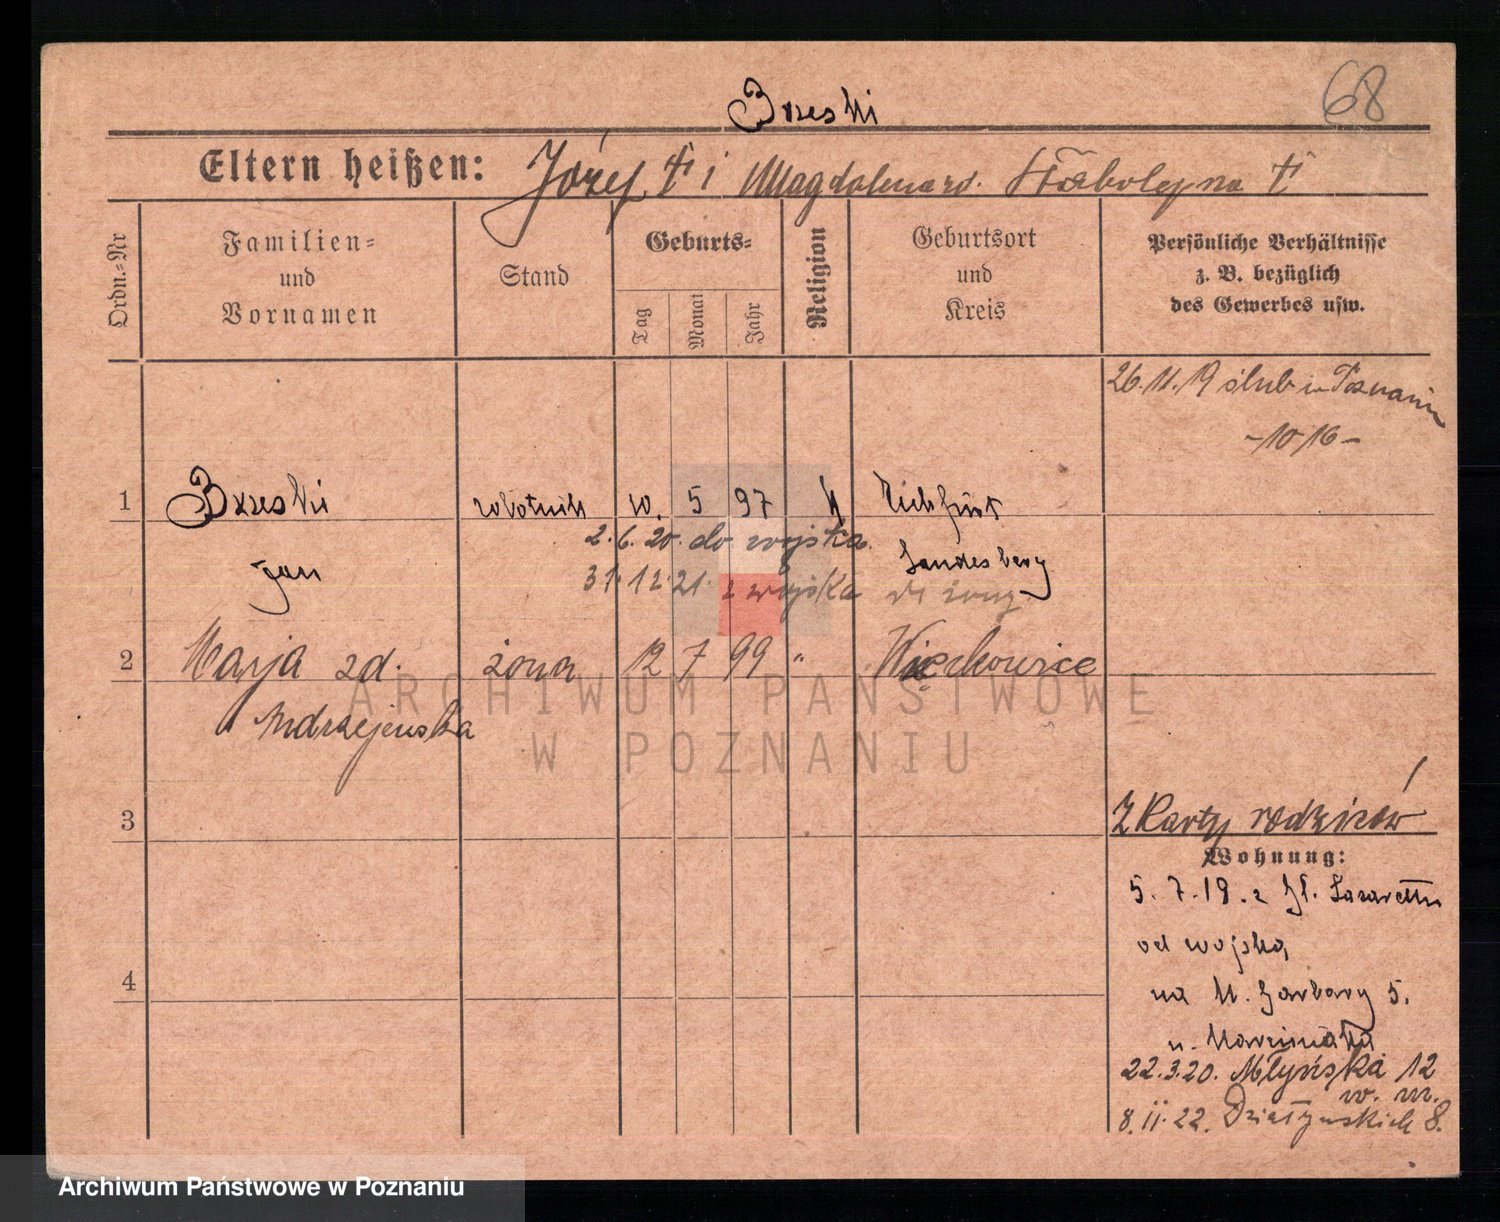 Brzeski
68
Eltern heißen: Józef † i Magdalena zd. †
Ordn.-Nr
Familien- und Vornamen
Stand
Geburts-
Tag
Monat
Jahr
Religion
Geburtsort und Kreis
Persönliche Verhältnisse
z. B. bezüglich
des Gewerbes usw.
26.11.19 ślub w Poznaniu
-1016-
1 Brzeski robotnik 10. 5 97 k
2.6.20. do wojska
Jan Landesberg
31.12.21. z wojska do żony
2 Marja zd. żona 12 7 99 " Więckowice
Andrzejewska
ARCHIWUM PAŃSTWOWE
W POZNANIU
3
Z Karty rodziców
Wohnung:
5. 7. 19. z Lazarettu
od wojska
4
na Garbary 5.
u. Marciniaka
22.3.20. Młyńska 12
w. m.
8.II.22. Działyńskich 8.
Archiwum Państwowe w Poznaniu